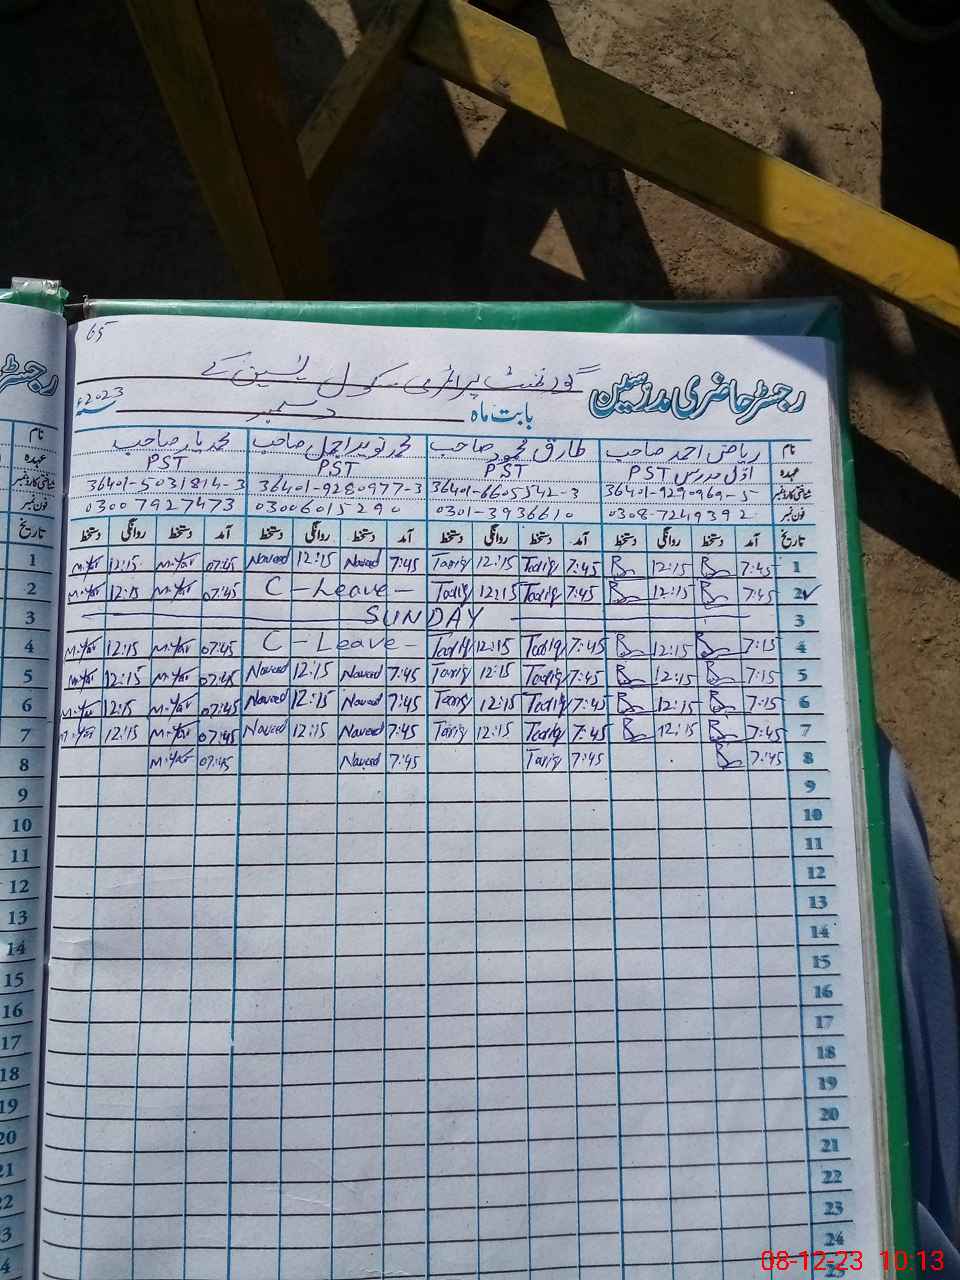 65
رجسٹر حاضری مدرسین گورنمنٹ پرائمری سکول یٰسین کے
بابت ماہ دسمبر سنہ 2023ء
نام ریاض احمد صاحب طارق محمود صاحب محمد نوید اجمل صاحب محمد یار صاحب
عہدہ اول مدرس PST PST PST PST
شناختی کارڈ نمبر 36401-9290969-5 36401-6605542-3 36401-9280977-3 36401-5031814-3
فون نمبر 0308-7249392 0301-3936610 03006015290 03007927473
تاریخ آمد دستخط روانگی دستخط آمد دستخط روانگی دستخط آمد دستخط روانگی دستخط آمد دستخط روانگی دستخط
1 7:45 12:15 7:45 Tariq 12:15 Tariq 7:45 Naveed 12:15 Naveed 07:45 M.Yar 12:15 M.Yar
2 7:45 12:15 7:45 Tariq 12:15 Tariq C - Leave - 07:45 M.Yar 12:15 M.Yar
3 SUNDAY
4 7:15 12:15 7:45 Tariq 12:15 Tariq C - Leave - 07:45 M.Yar 12:15 M.Yar
5 7:15 12:15 7:45 Tariq 12:15 Tariq 7:45 Naveed 12:15 Naveed 07:45 M.Yar 12:15 M.Yar
6 7:15 12:15 7:45 Tariq 12:15 Tariq 7:45 Naveed 12:15 Naveed 07:45 M.Yar 12:15 M.Yar
7 7:45 12:15 7:45 Tariq 12:15 Tariq 7:45 Naveed 12:15 Naveed 07:45 M.Yar 12:15 M.Yar
8 7:45 7:45 Tariq 7:45 Naveed 07:45 M.Yar
9
10
11
12
13
14
15
16
17
18
19
20
21
22
23
24
25
رجسٹر
نام
عہدہ
شناختی کارڈ نمبر
فون نمبر
تاریخ
1
2
3
4
5
6
7
8
9
10
11
12
13
14
15
16
17
18
19
20
21
22
3
4
08-12-23 10:13